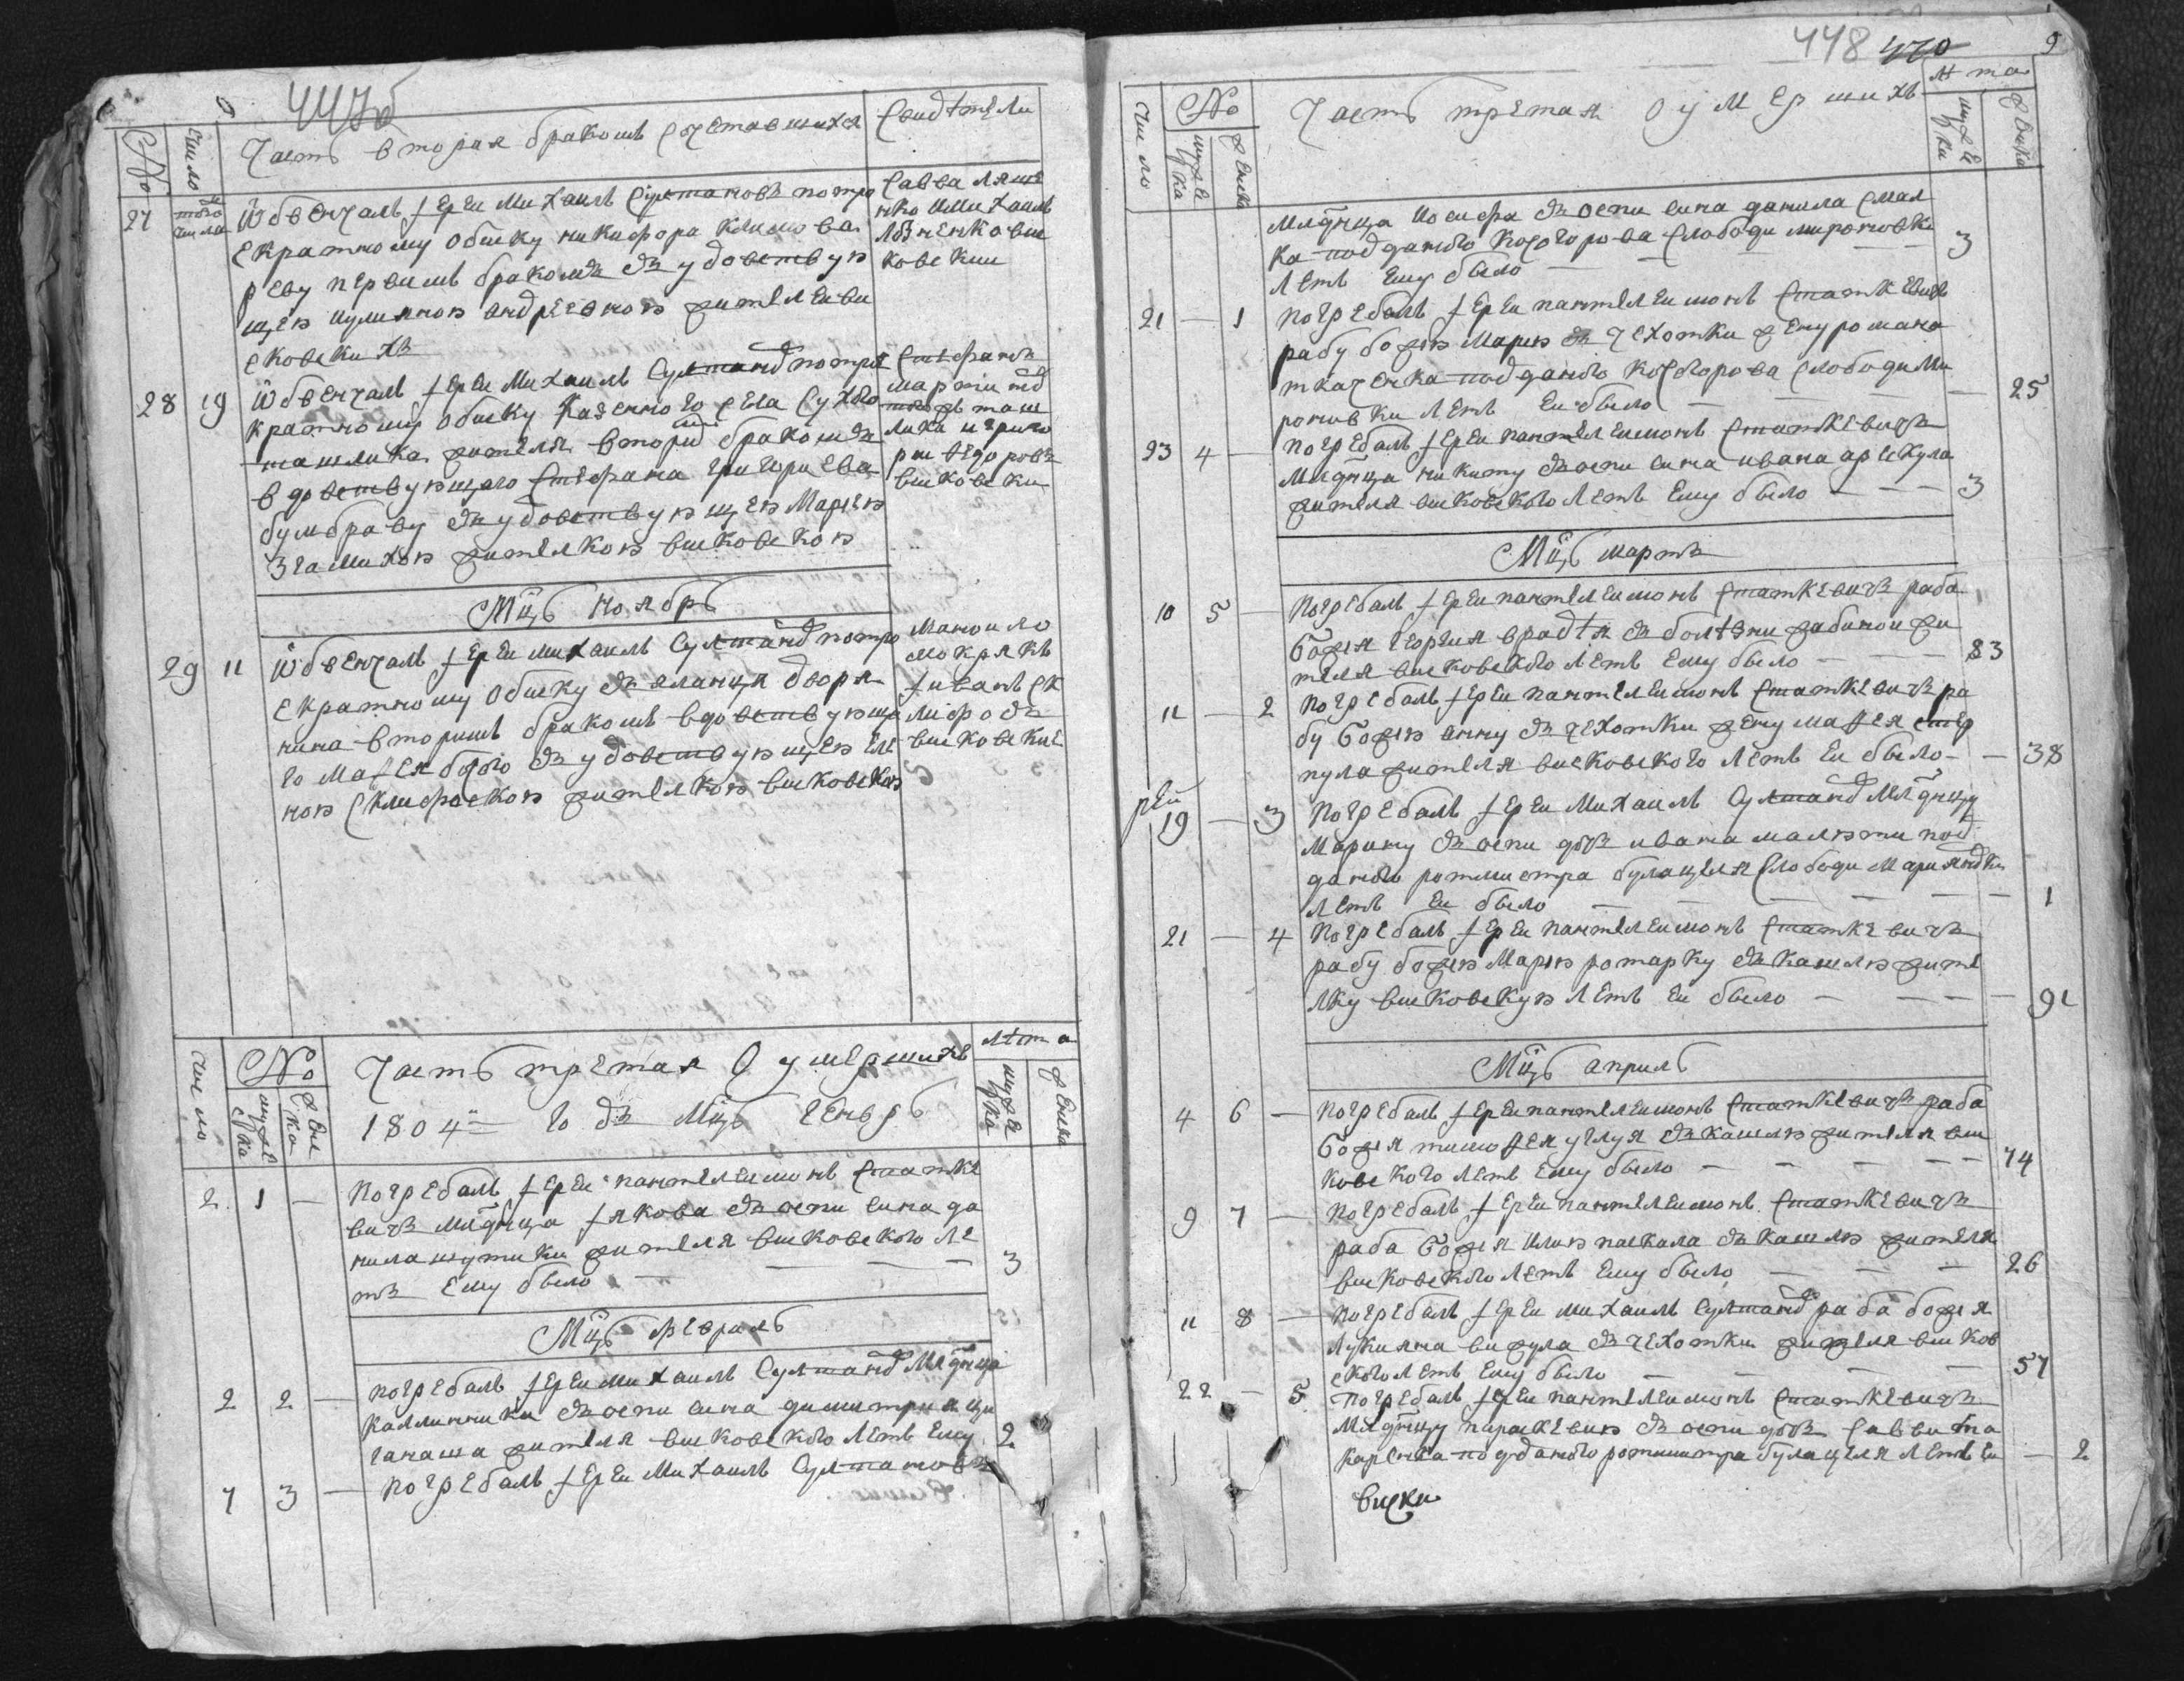 447об
№
Число
Часть вторая бракомъ сочетавшихся
Свидѣтели
27
того числа
Ѿбвенчалъ іерей Михаилъ Султановъ потро
екратному обиску никифора климова
реву первимъ бракомъ зъ удовствую
щею иулияною андреевною жителей ви
сковскихъ
Савва ляше
нко и михаилъ
лозненко вис
ковскии
28 19
Ѿбвенчалъ іерей Михаилъ Султановъ потрое
кратному обиску казенного села Сухого
ташлика жителя вторимъ бракомъ
вдовствующаго Стефана григориева
бумбраву зъ удовствующею Мариею
згамихою жителкою висковскою
Стефанъ
мартинов
ташлика и григо
рии федоровъ
висковски
Мцъ ноябрь
29 11
Ѿбвенчалъ іерей михаилъ Султановъ потро
екратному обиску зъ яланця дворя
нина вторимъ бракомъ вдовствующа
го Мафея зъ удовствующею еле
ною склифоскою жителкою висковскою
Маноило
мокрякъ
іиванъ ск
лифодъ
висковские
Число
№
мужеска
женска
Часть третая О умершихъ
1804 го дъ Мцъ генварь
лѣта
мужеска
женска
2 1 —
погребалъ іерей пантелеимонъ Статке
вичъ младнца іякова зъ оспи сина да
нила шутики жителя висковского ле
тъ ему было — — — — 3
Мцъ февраль
2 2 —
погребалъ іерей михаилъ Султановъ Младнца
каллиника зъ оспи сина димитрия ци
ганаша жителя висковского летъ ему 2
7 3 —
погребалъ іерей Михаилъ Султановъ
448 470
9
Число
№
мужеска
женска
Часть третая О умершихъ
лѣта
мужески
женска
младнца иосифа зъ оспи сина данила смал
ка подданого косогорова слободи мироновки
летъ ему было — — — — 3
21 — 1
погребалъ іерей пантелеимонъ Статкевичъ
рабу божию Марию зъ чехотки жену романа
ткаченка подданого косогорова слободи Ми
роновки летъ еи было — — — — 25
23 4 —
погребалъ іерей пантелеимонъ Статкевичъ
младнца никиту зъ оспи сина ивана арсекула
жителя висковского летъ ему было — — — 3
Мцъ мартъ
10 5 —
погребалъ іерей пантелеимонъ Статкевичъ раба
Божия георгия врадѣя зъ болѣзни жабиной жи
теля висковского летъ ему было — — — 83
11 — 2
погребалъ іерей пантелеимонъ Статкевичъ ра
бу Божию анну зъ чехотки жену мафея стер
пула жителя висковского летъ еи было — — 38
19 — 3
погребалъ іерей Михаилъ Султановъ Младнцу
Марину зъ оспи дочъ ивана малюти под
даного ротмистра булацеля слободи Мариановки
летъ еи было — — — — 1
21 — 4
погребалъ іерей пантелеимонъ Статкевичъ
рабу божию Марию ротарку зъ кашлю жите
лку висковскую летъ еи было — — — 91
Мцъ априль
4 6 —
погребалъ іерей пантелеимонъ Статкевичъ раба
Божия тимофея углуя зъ кашлю жителя вис
ковского летъ ему было — — — — 74
9 7 —
погребалъ іерей пантелеимонъ Статкевичъ
раба Божия илию паскала зъ кашлю жителя
висковского летъ ему было — — — 26
11 8 —
погребалъ іерей михаилъ Султановъ раба божия
лукияна вижула зъ чехотки жителя висков
ского летъ ему было — — — — 57
22 — 5
погребалъ іерей пантелеимонъ Статкевичъ
младнцу параскевию зъ оспи дочъ Савви ма
каренка подданого ротмистра булацеля летъ еи — 2
виски